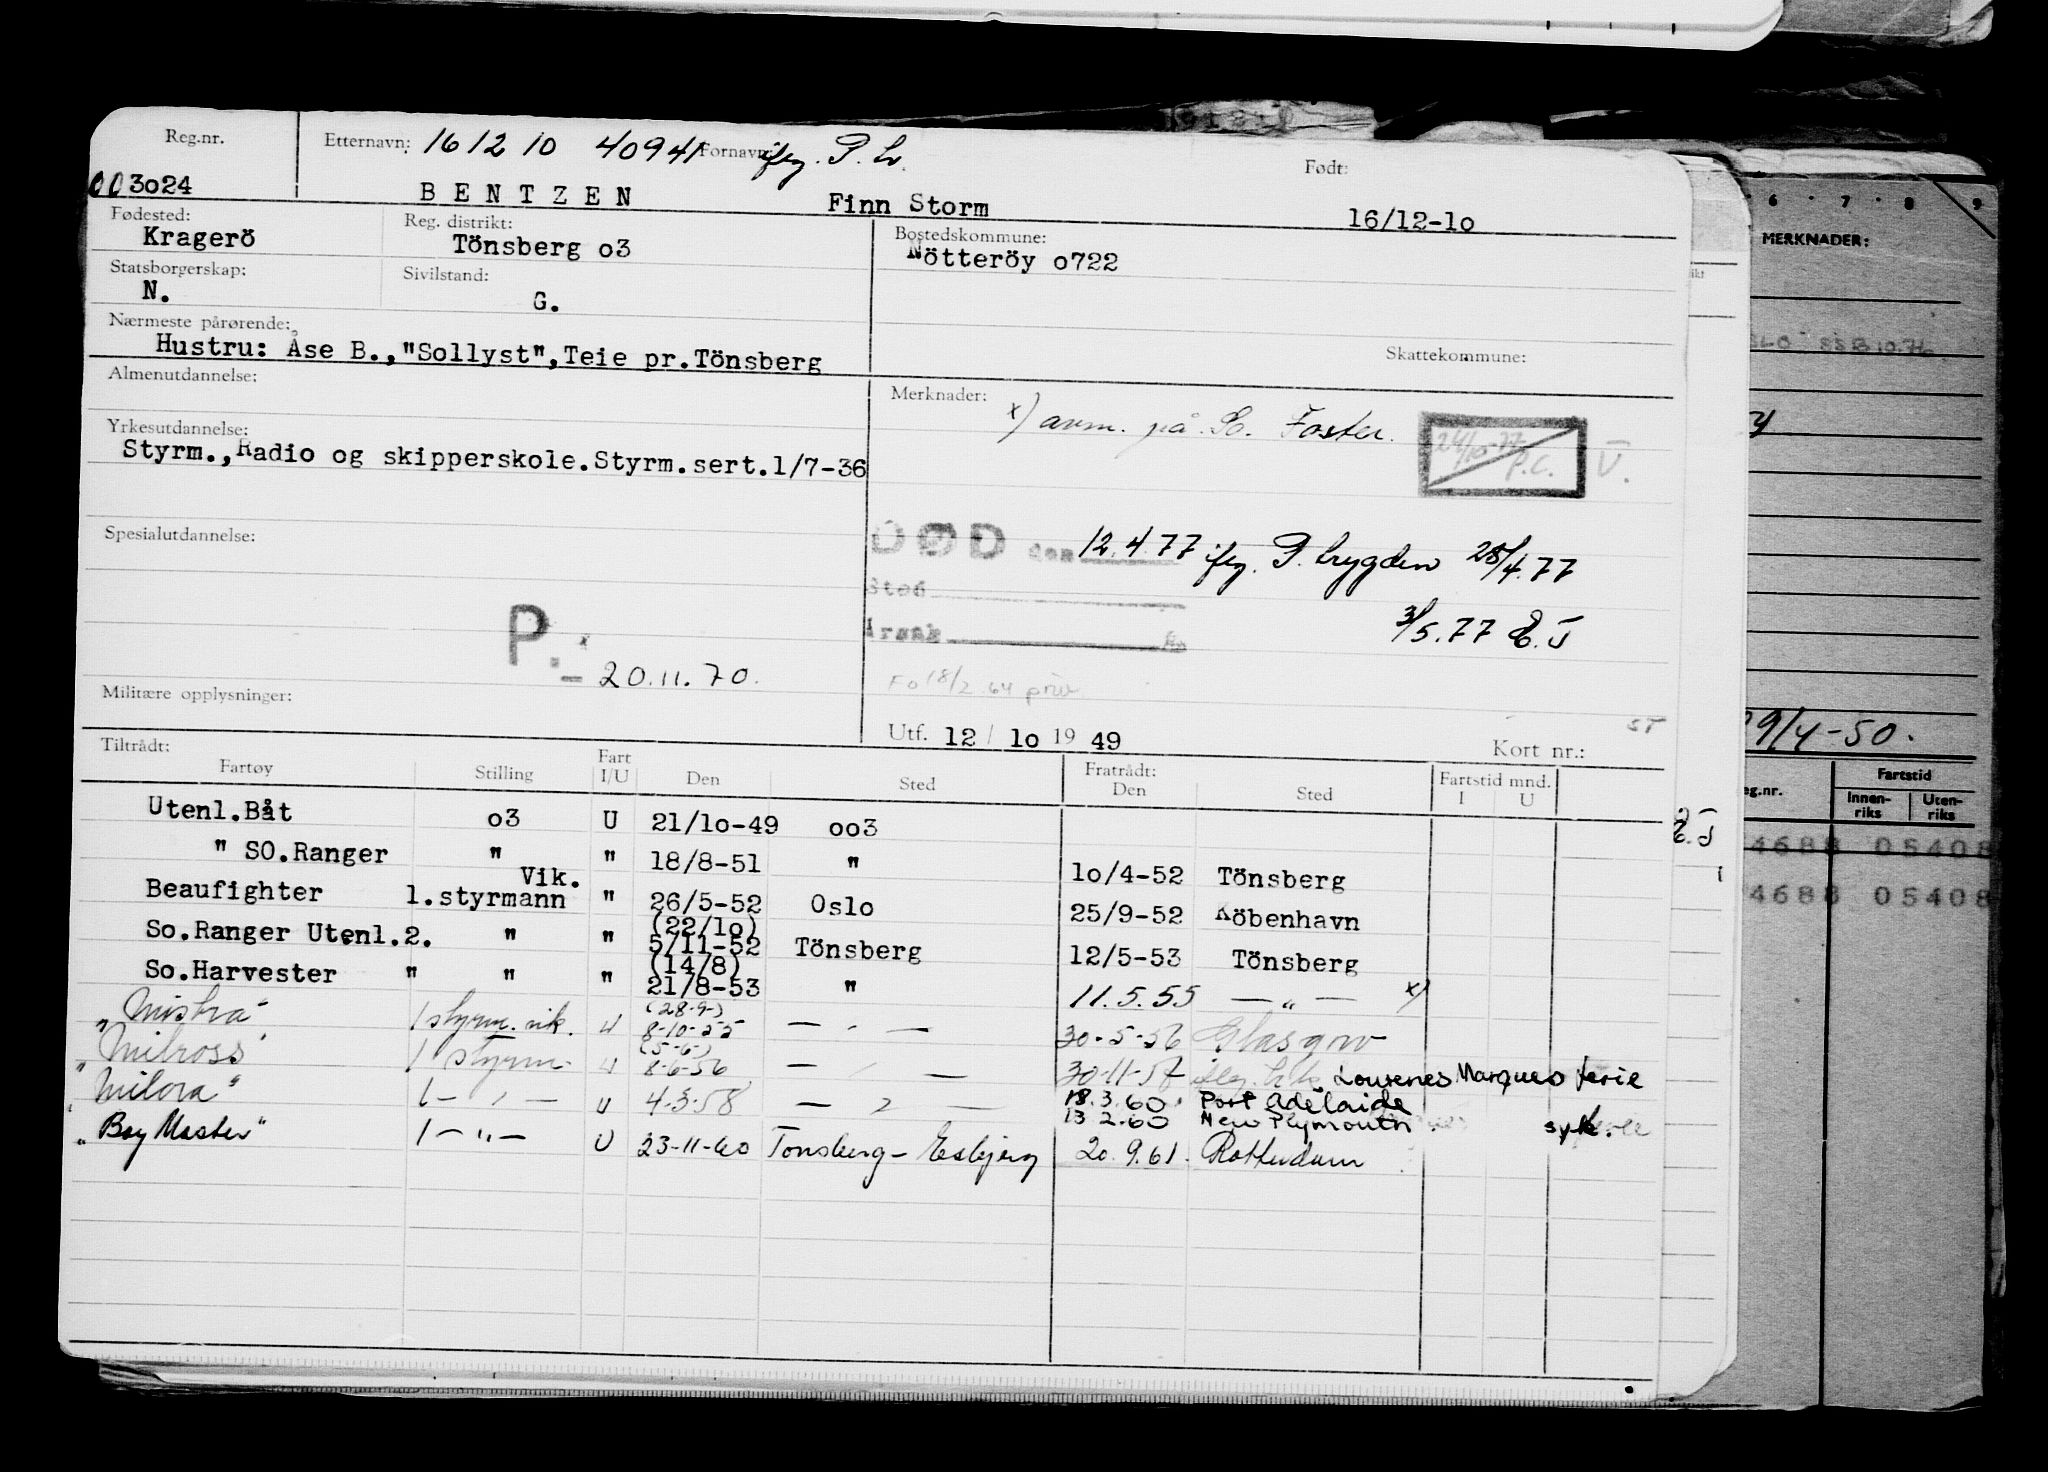 Reg.nr. Etternavn: 16 12 10 40941 Fornavn: Født:
003024 BENTZEN Finn Storm 16/12-10
Fødested: Reg. distrikt: Bostedskommune:
Kragerö Tönsberg o3 Nötteröy o722
Statsborgerskap: Sivilstand:
N. G.
Nærmeste pårørende:
Hustru: Åse B.,"Sollyst",Teie pr.Tönsberg Skattekommune:
Almenutdannelse: Merknader:
x) avm. på So. Foster.
Yrkesutdannelse: 24/10-77 P.C. V.
Styrm.,Radio og skipperskole.Styrm.sert.1/7-36
Spesialutdannelse: DØD den 12.4.77 iflg. P. trygden 28/4.77
Sted
Årsak 3/5.77 E.J
P. 20.11.70.
Fo 18/2.64 priv
Militære opplysninger:
Utf. 12/ 10 19 49 Kort nr.:
Tiltrådt: Fratrådt: Fartstid mnd.
Fartøy Stilling Fart I/U Den Sted Den Sted I U
Utenl.Båt o3 U 21/10-49 oo3
" SO.Ranger " " 18/8-51 " 10/4-52 Tönsberg
Vik.
Beaufighter 1.styrmann " 26/5-52 Oslo 25/9-52 Köbenhavn
(22/10)
So.Ranger Utenl.2. " " 5/11-52 Tönsberg 12/5-53 Tönsberg
(14/8)
So.Harvester " " " 21/8-53 " 11.5.55 — " — x)
(28-9-)
"Mistra" 1 styrm. vik. U 8-10-55 — " — 30-5-56 Glasgow
(5-6-)
"Milross" 1 styrm. U 8-6-56 — " — 30-11-57 Lourenes Marques ferie
"Milora" 1 — " — U 4-3-58 — " — 18.3.60 Port Adelaide
13 2.60 New Plymouth syk.
"Bay Master" 1 — " — U 23-11-60 Tönsberg - Esbjerg 20.9.61. Rotterdam
6 7 8 9
MERKNADER:
9/4-50.
Fartstid
eg.nr. Innen-riks Uten-riks
4688 05408
4688 05408
E.J